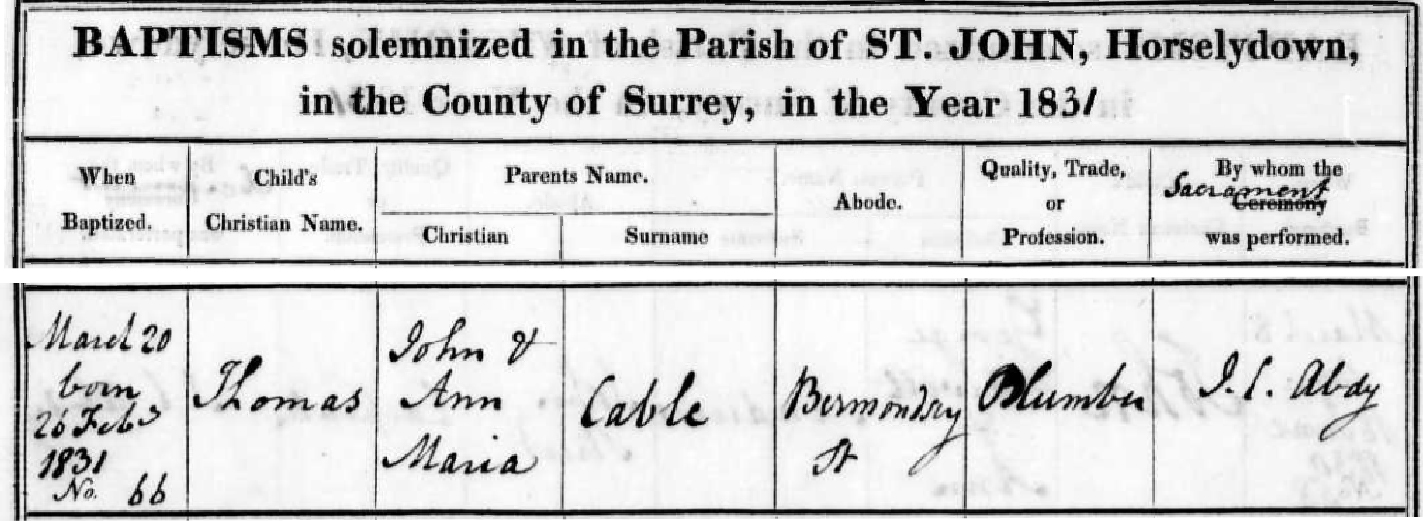 BAPTISMS solemnized in the Parish of ST. JOHN, Horselydown,
in the County of Surrey, in the Year 1831
When
Baptized.
Child's
Christian Name.
Parents Name.
Christian
Surname
Abode.
Quality, Trade,
or
Profession.
By whom the
Sacrament
Ceremony
was performed.
March 20
born
26 Feby
1831
No. 66
Thomas
John &
Ann
Maria
Cable
Bermondsey
St
Plumber
J. C. Abdy